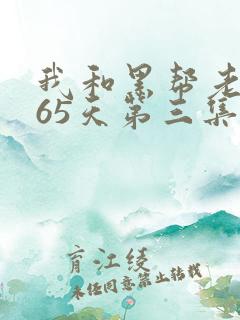 我和黑帮老
65天第三集
育江绫
未经同意禁止转载